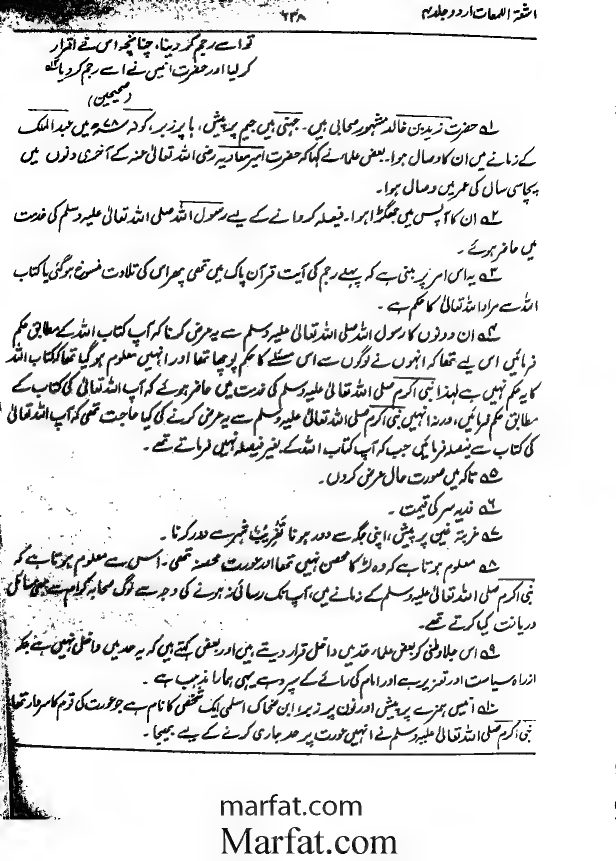 اشعۃ اللمعات اردو جلد ۴
۶۳۸
تو اسے رجم کر دینا، چنانچہ اس نے اقرار
کر لیا اور حضرت انیس نے اسے رجم کر دیا
(صحیحین)
۱؎ حضرت زید بن خالد مشہور صحابی ہیں۔ جہنی ہیں جیم پر پیش، ہا پر زبر، کوفہ ۷۸ھ میں عبدالملک
کے زمانے میں ان کا وصال ہوا۔ بعض علماء نے کہا کہ حضرت امیر معاویہ رضی اللہ تعالیٰ عنہ کے آخری دنوں میں
پچاسی سال کی عمر میں وصال ہوا۔
۲؎ ان کا آپس میں جھگڑا ہوا۔ فیصلہ کروانے کے لیے رسول اللہ صلی اللہ تعالیٰ علیہ وسلم کی خدمت
میں حاضر ہوئے۔
۳؎ یہ اس امر پر مبنی ہے کہ پہلے رجم کی آیت قرآن پاک میں تھی پھر اس کی تلاوت منسوخ ہو گئی یا کتاب
اللہ سے مراد اللہ تعالیٰ کا حکم ہے۔
۴؎ ان دونوں کا رسول اللہ صلی اللہ تعالیٰ علیہ وسلم سے یہ عرض کرنا کہ آپ کتاب اللہ کے مطابق حکم
فرمائیں اس لیے تھا کہ انہوں نے لوگوں سے اس مسئلے کا حکم پوچھا تھا اور انہیں معلوم ہو گیا تھا کہ کتاب اللہ
کا یہ حکم نہیں ہے لہٰذا نبی اکرم صلی اللہ تعالیٰ علیہ وسلم کی خدمت میں حاضر ہوئے کہ آپ اللہ تعالیٰ کی کتاب کے
مطابق حکم فرمائیں، ورنہ انہیں نبی اکرم صلی اللہ تعالیٰ علیہ وسلم سے یہ عرض کرنے کی کیا حاجت تھی کہ آپ اللہ تعالیٰ
کی کتاب سے فیصلہ فرمائیں جب کہ آپ کتاب اللہ کے بغیر فیصلہ نہیں فرماتے تھے۔
۵؎ تاکہ میں صورت حال عرض کروں۔
۶؎ فدیہ سر کی قیمت۔
۷؎ غربۃ غین پر پیش، اپنی جگہ سے دور ہونا تَغْرِیْبٌ شہر سے دور کرنا۔
۸؎ معلوم ہوتا ہے کہ وہ لڑکا محصن نہیں تھا اور عورت محصنہ تھی۔ اس سے معلوم ہوتا ہے کہ
نبی اکرم صلی اللہ تعالیٰ علیہ وسلم کے زمانے میں، آپ تک رسائی نہ ہونے کی وجہ سے لوگ صحابہ کرام سے بھی مسائل
دریافت کیا کرتے تھے۔
۹؎ اس جلا وطنی کو بعض علماء حد میں داخل قرار دیتے ہیں اور بعض کہتے ہیں کہ یہ حد میں داخل نہیں ہے بلکہ
ازراہ سیاست اور تعزیر ہے اور امام کی رائے کے سپرد ہے یہی ہمارا مذہب ہے۔
۱۰؎ انیس ہمزے پر پیش اور نون پر زبر، ابن ضحاک اسلمی ایک شخص کا نام ہے جو عورت کی قوم کا سردار تھا
نبی اکرم صلی اللہ تعالیٰ علیہ وسلم نے انہیں عورت پر حد جاری کرنے کے لیے بھیجا۔
marfat.com
Marfat.com